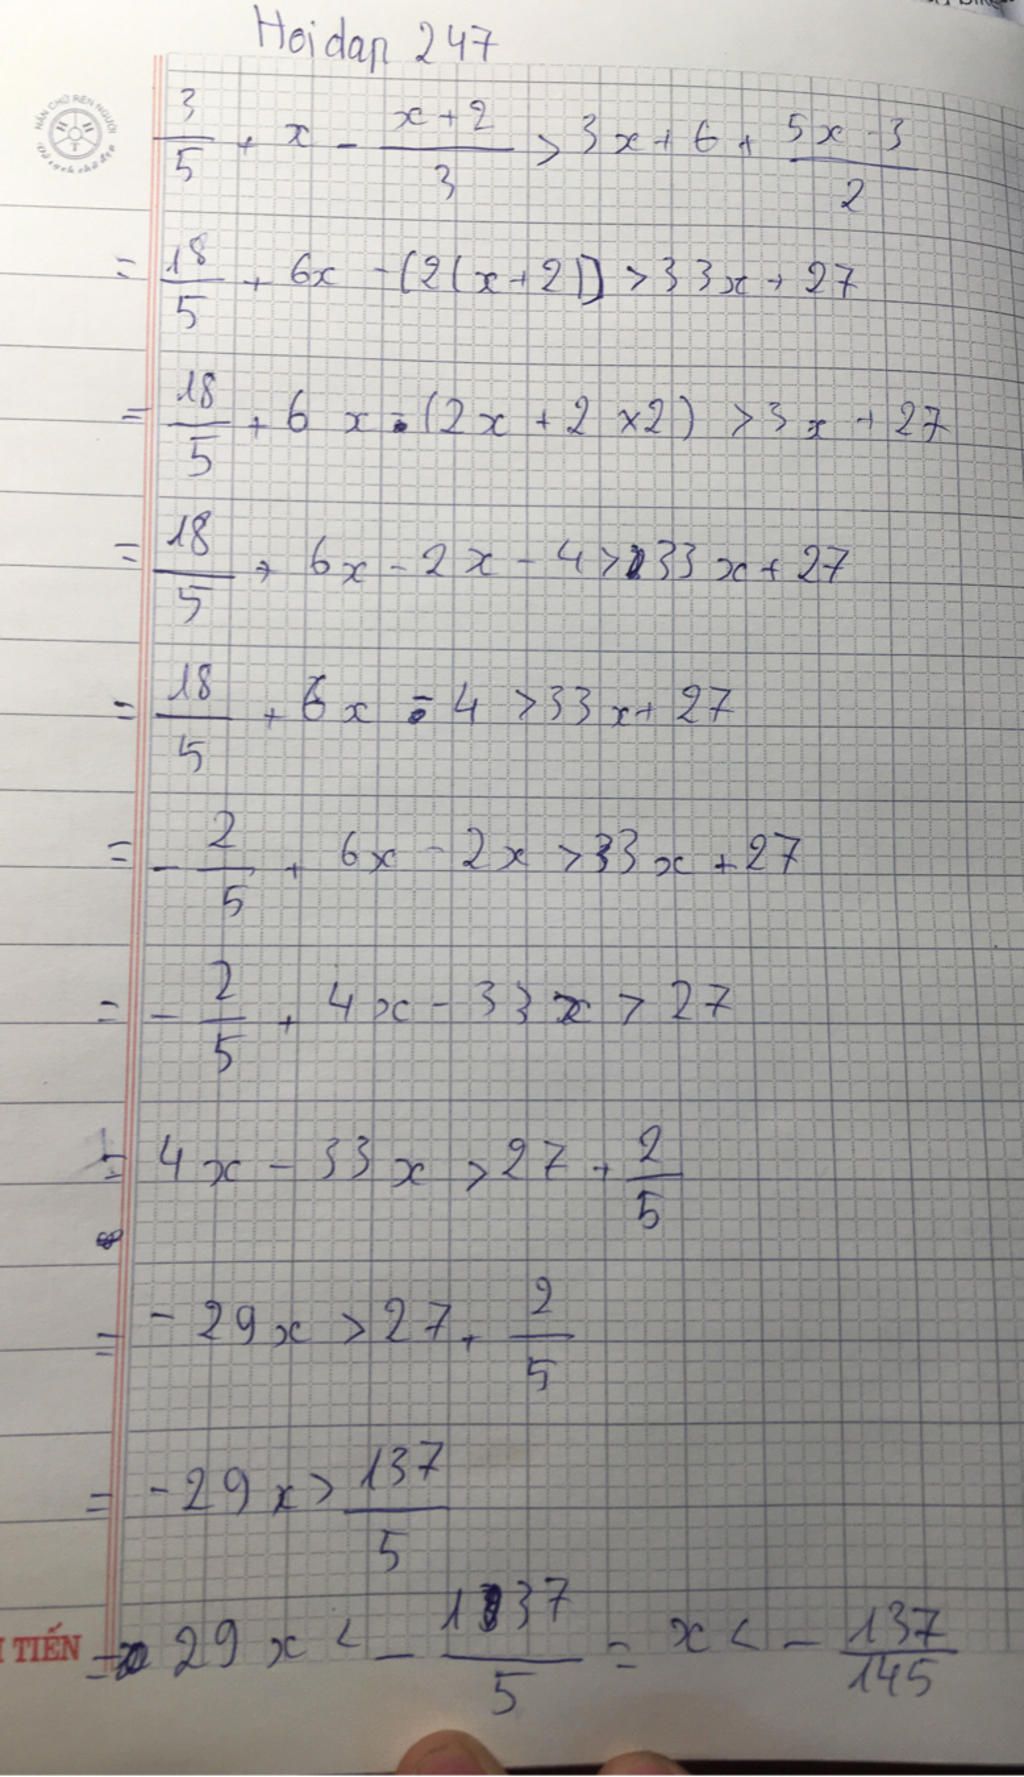 Hoidap 247
3/5 + x - (x+2)/3 > 3x + 6 + (5x-3)/2
= 18/5 + 6x - [2(x+2)] > 33x + 27
= 18/5 + 6x - (2x + 2 × 2) > 3x + 27
= 18/5 + 6x - 2x - 4 > 33x + 27
= 18/5 + 6x - 4 > 33x + 27
= - 2/5 + 6x - 2x > 33x + 27
= - 2/5 + 4x - 33x > 27
= 4x - 33x > 27 + 2/5
= - 29x > 27 + 2/5
= - 29x > 137/5
= 29x < - 137/5 = x < - 137/145
TIẾN